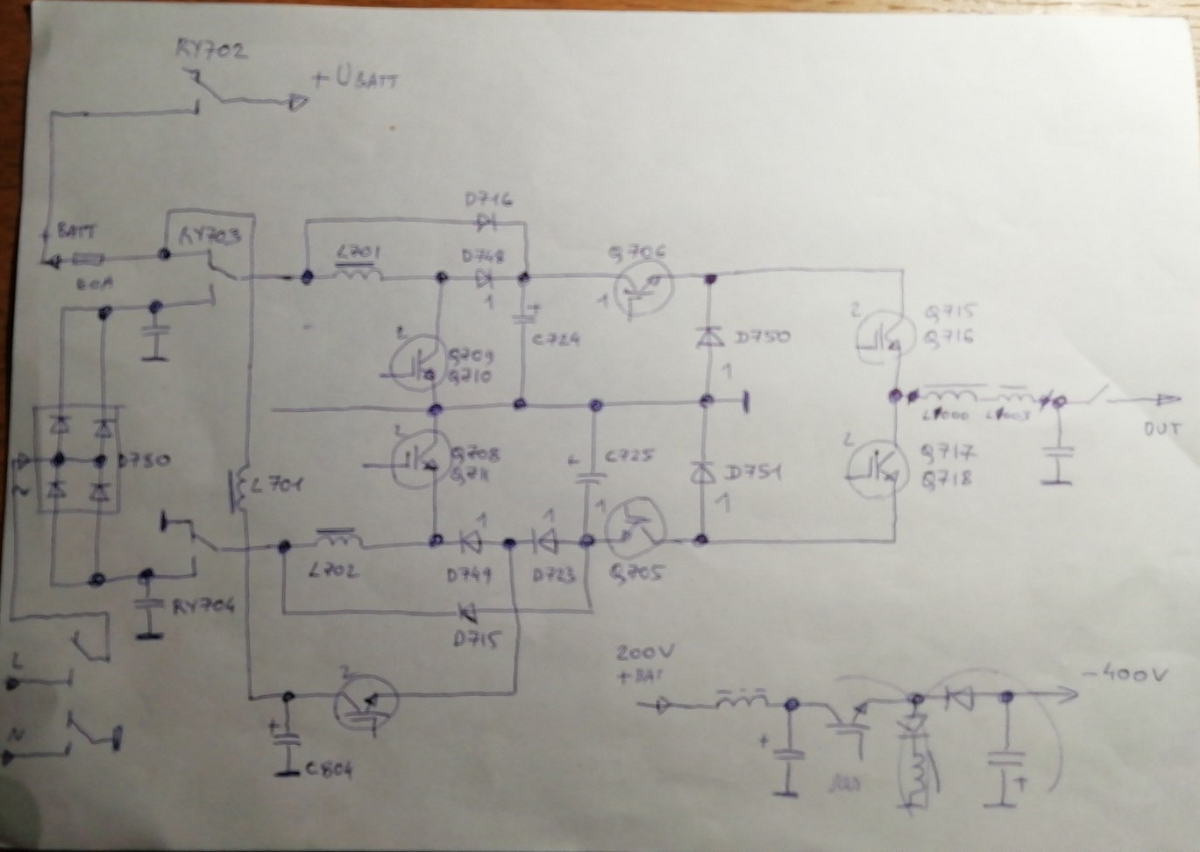 RY702
+ UBATT
D716
+ BATT
RY703
L701
D748
Q706
60A
1
1
+
C724
2
Q715
Q716
D750
2
Q709
Q710
1
2
Q708
Q711
C725
+
D751
1
2
Q717
Q718
OUT
D730
~
L701
1
1
1
L702
D749
D723
Q705
RY704
D715
2
200V
+BAT
-400V
L
N
+
C804
+
+